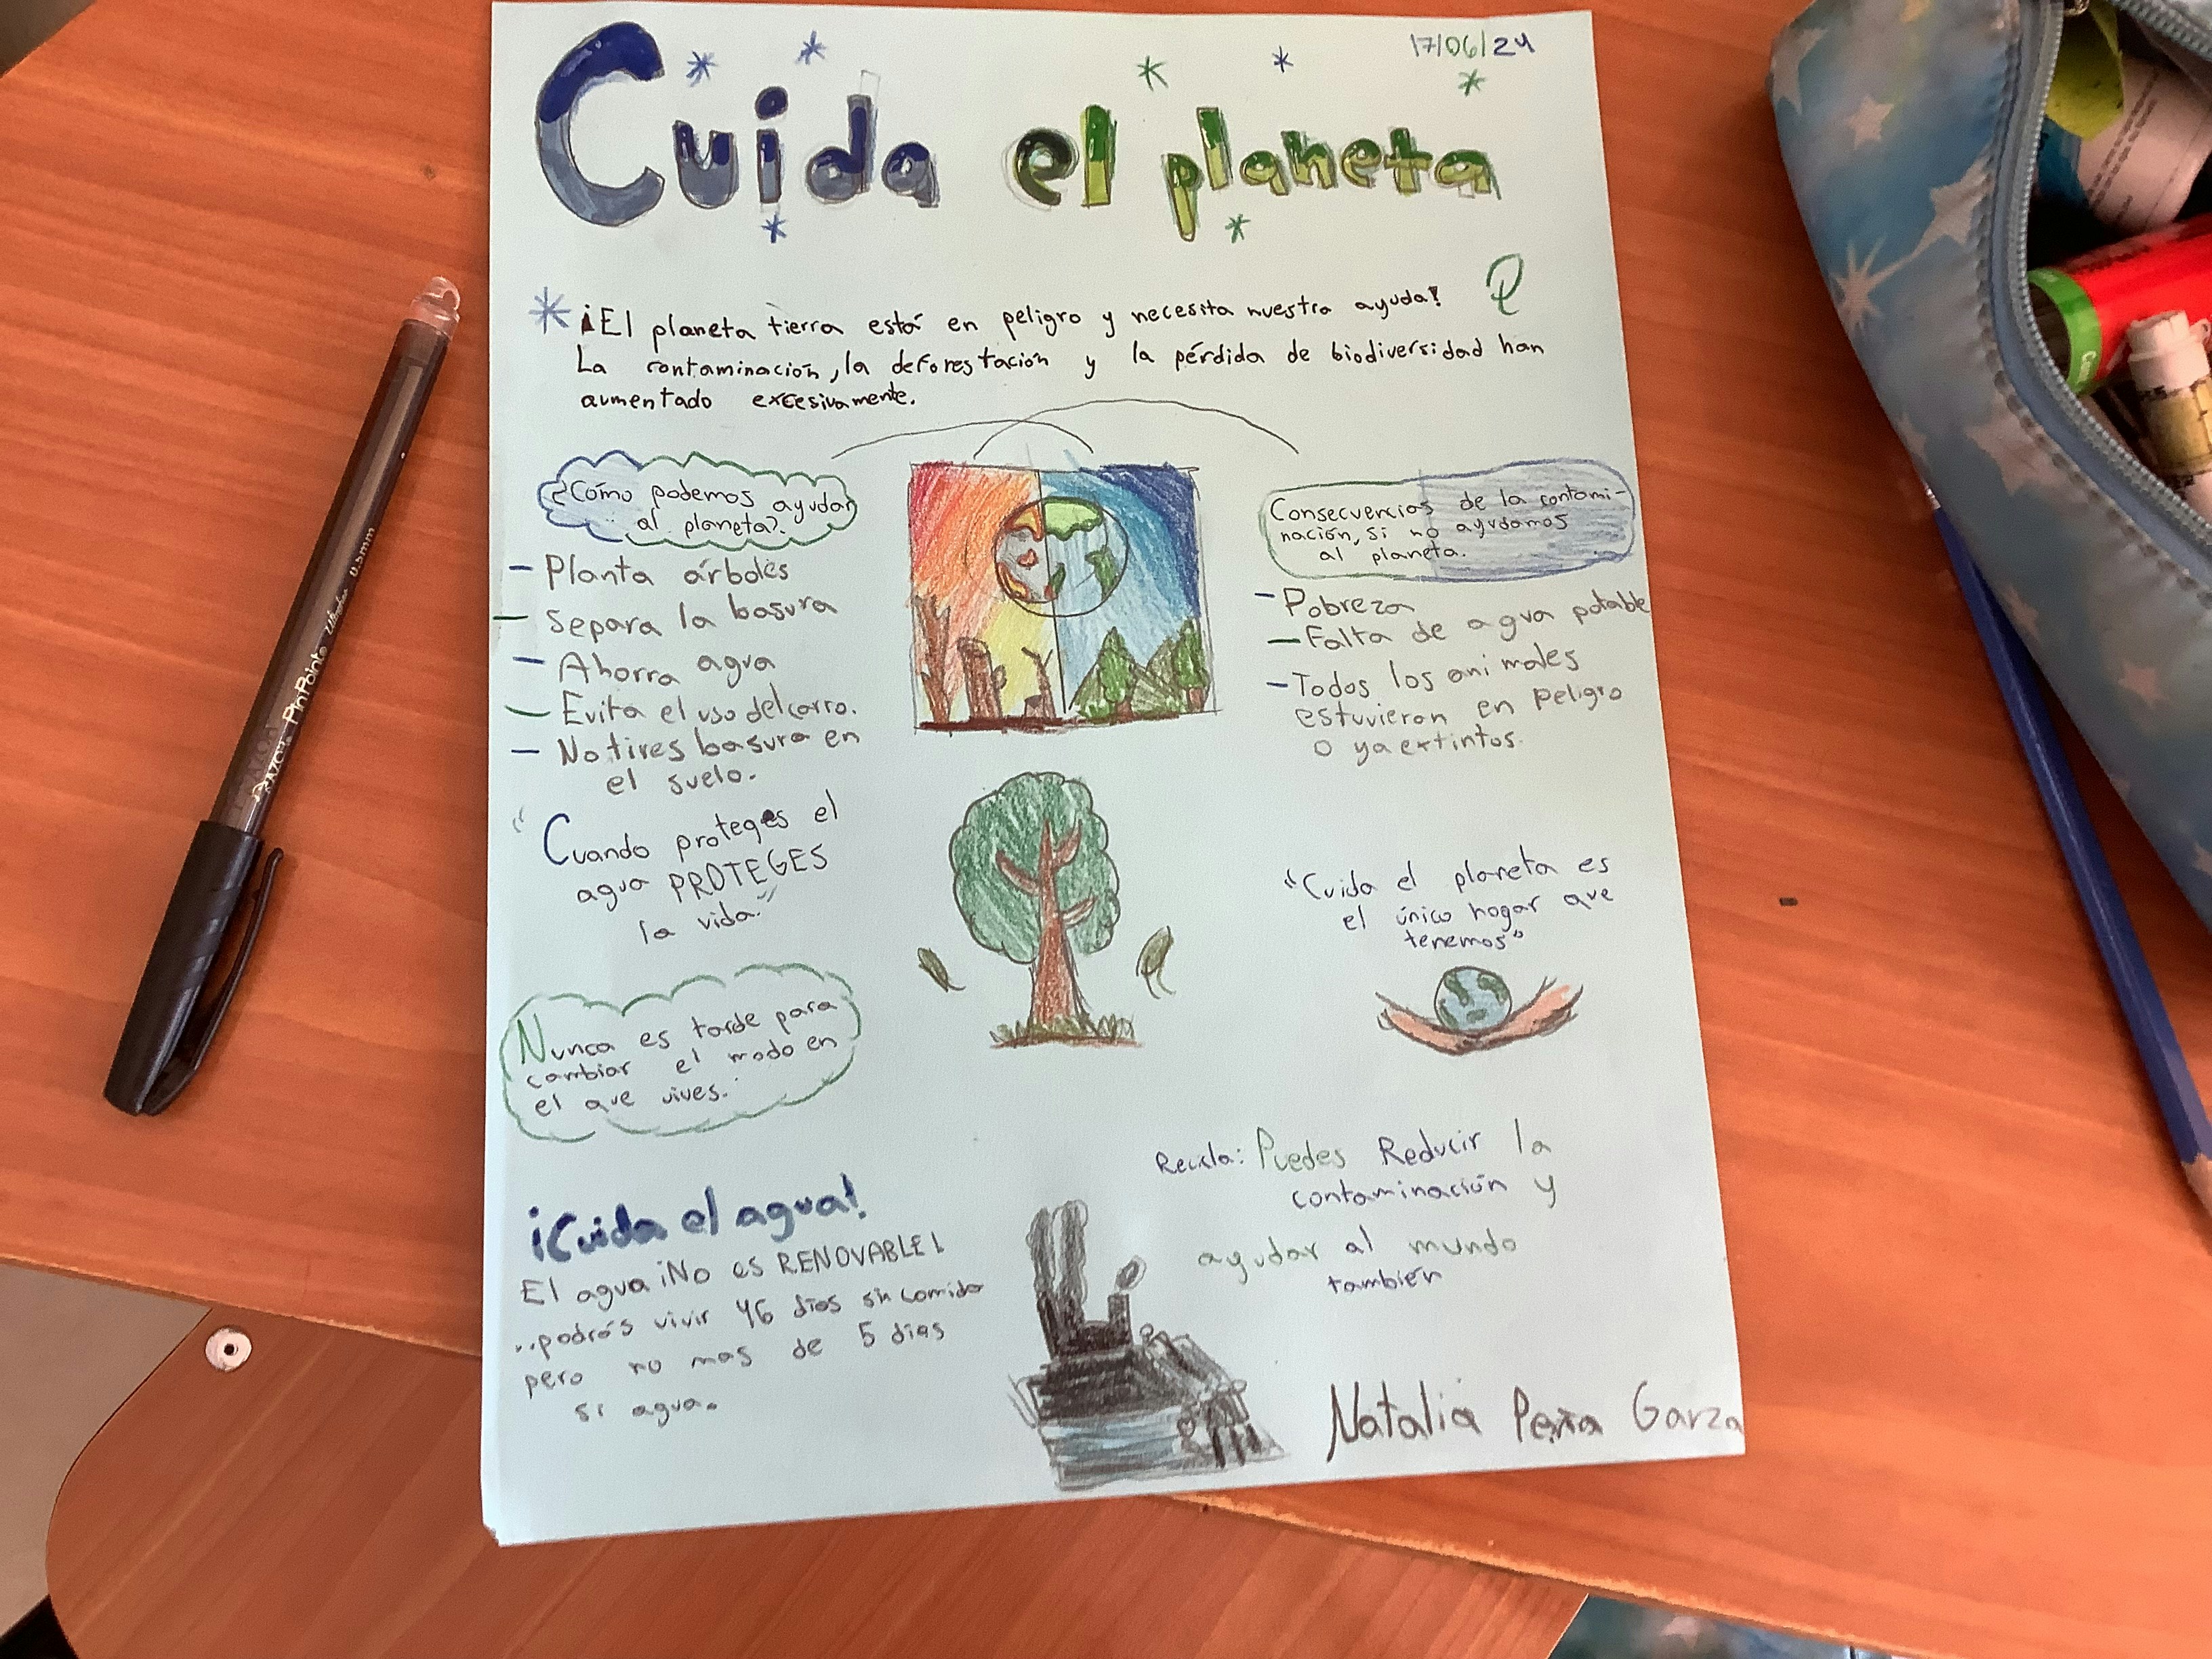 17/06/24
Cuida el planeta
¡El planeta tierra está en peligro y necesita nuestra ayuda!
La contaminación, la deforestación y la pérdida de biodiversidad han
aumentado excesivamente.
¿Cómo podemos ayudar
al planeta?
- Planta árboles
- Separa la basura
- Ahorra agua
- Evita el uso del carro.
- No tires basura en
el suelo.
Consecuencias de la contami-
nación, si no ayudamos
al planeta.
- Pobreza
- Falta de agua potable
- Todos los animales
estuvieron en peligro
o ya extintos.
"Cuando proteges el
agua PROTEGES
la vida."
"Cuida el planeta es
el único hogar que
tenemos"
Nunca es tarde para
cambiar el modo en
el que vives.
Recicla: Puedes Reducir la
contaminación y
ayudar al mundo
también
¡Cuida el agua!
El agua ¡No es RENOVABLE!
..podrás vivir 46 días sin comida
pero no mas de 5 dias
si agua.
Natalia Peña Garza
PinPoint 0.5mm